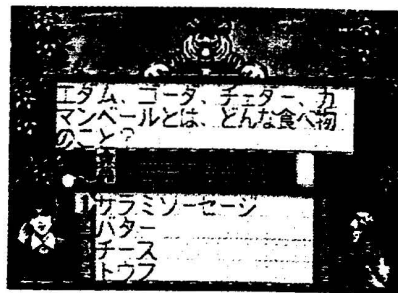 エダム、ゴータ、チェダー、カ
マンベールとは、どんな食べ物
のこと?
サラミソーセージ
バター
チーズ
トウフ